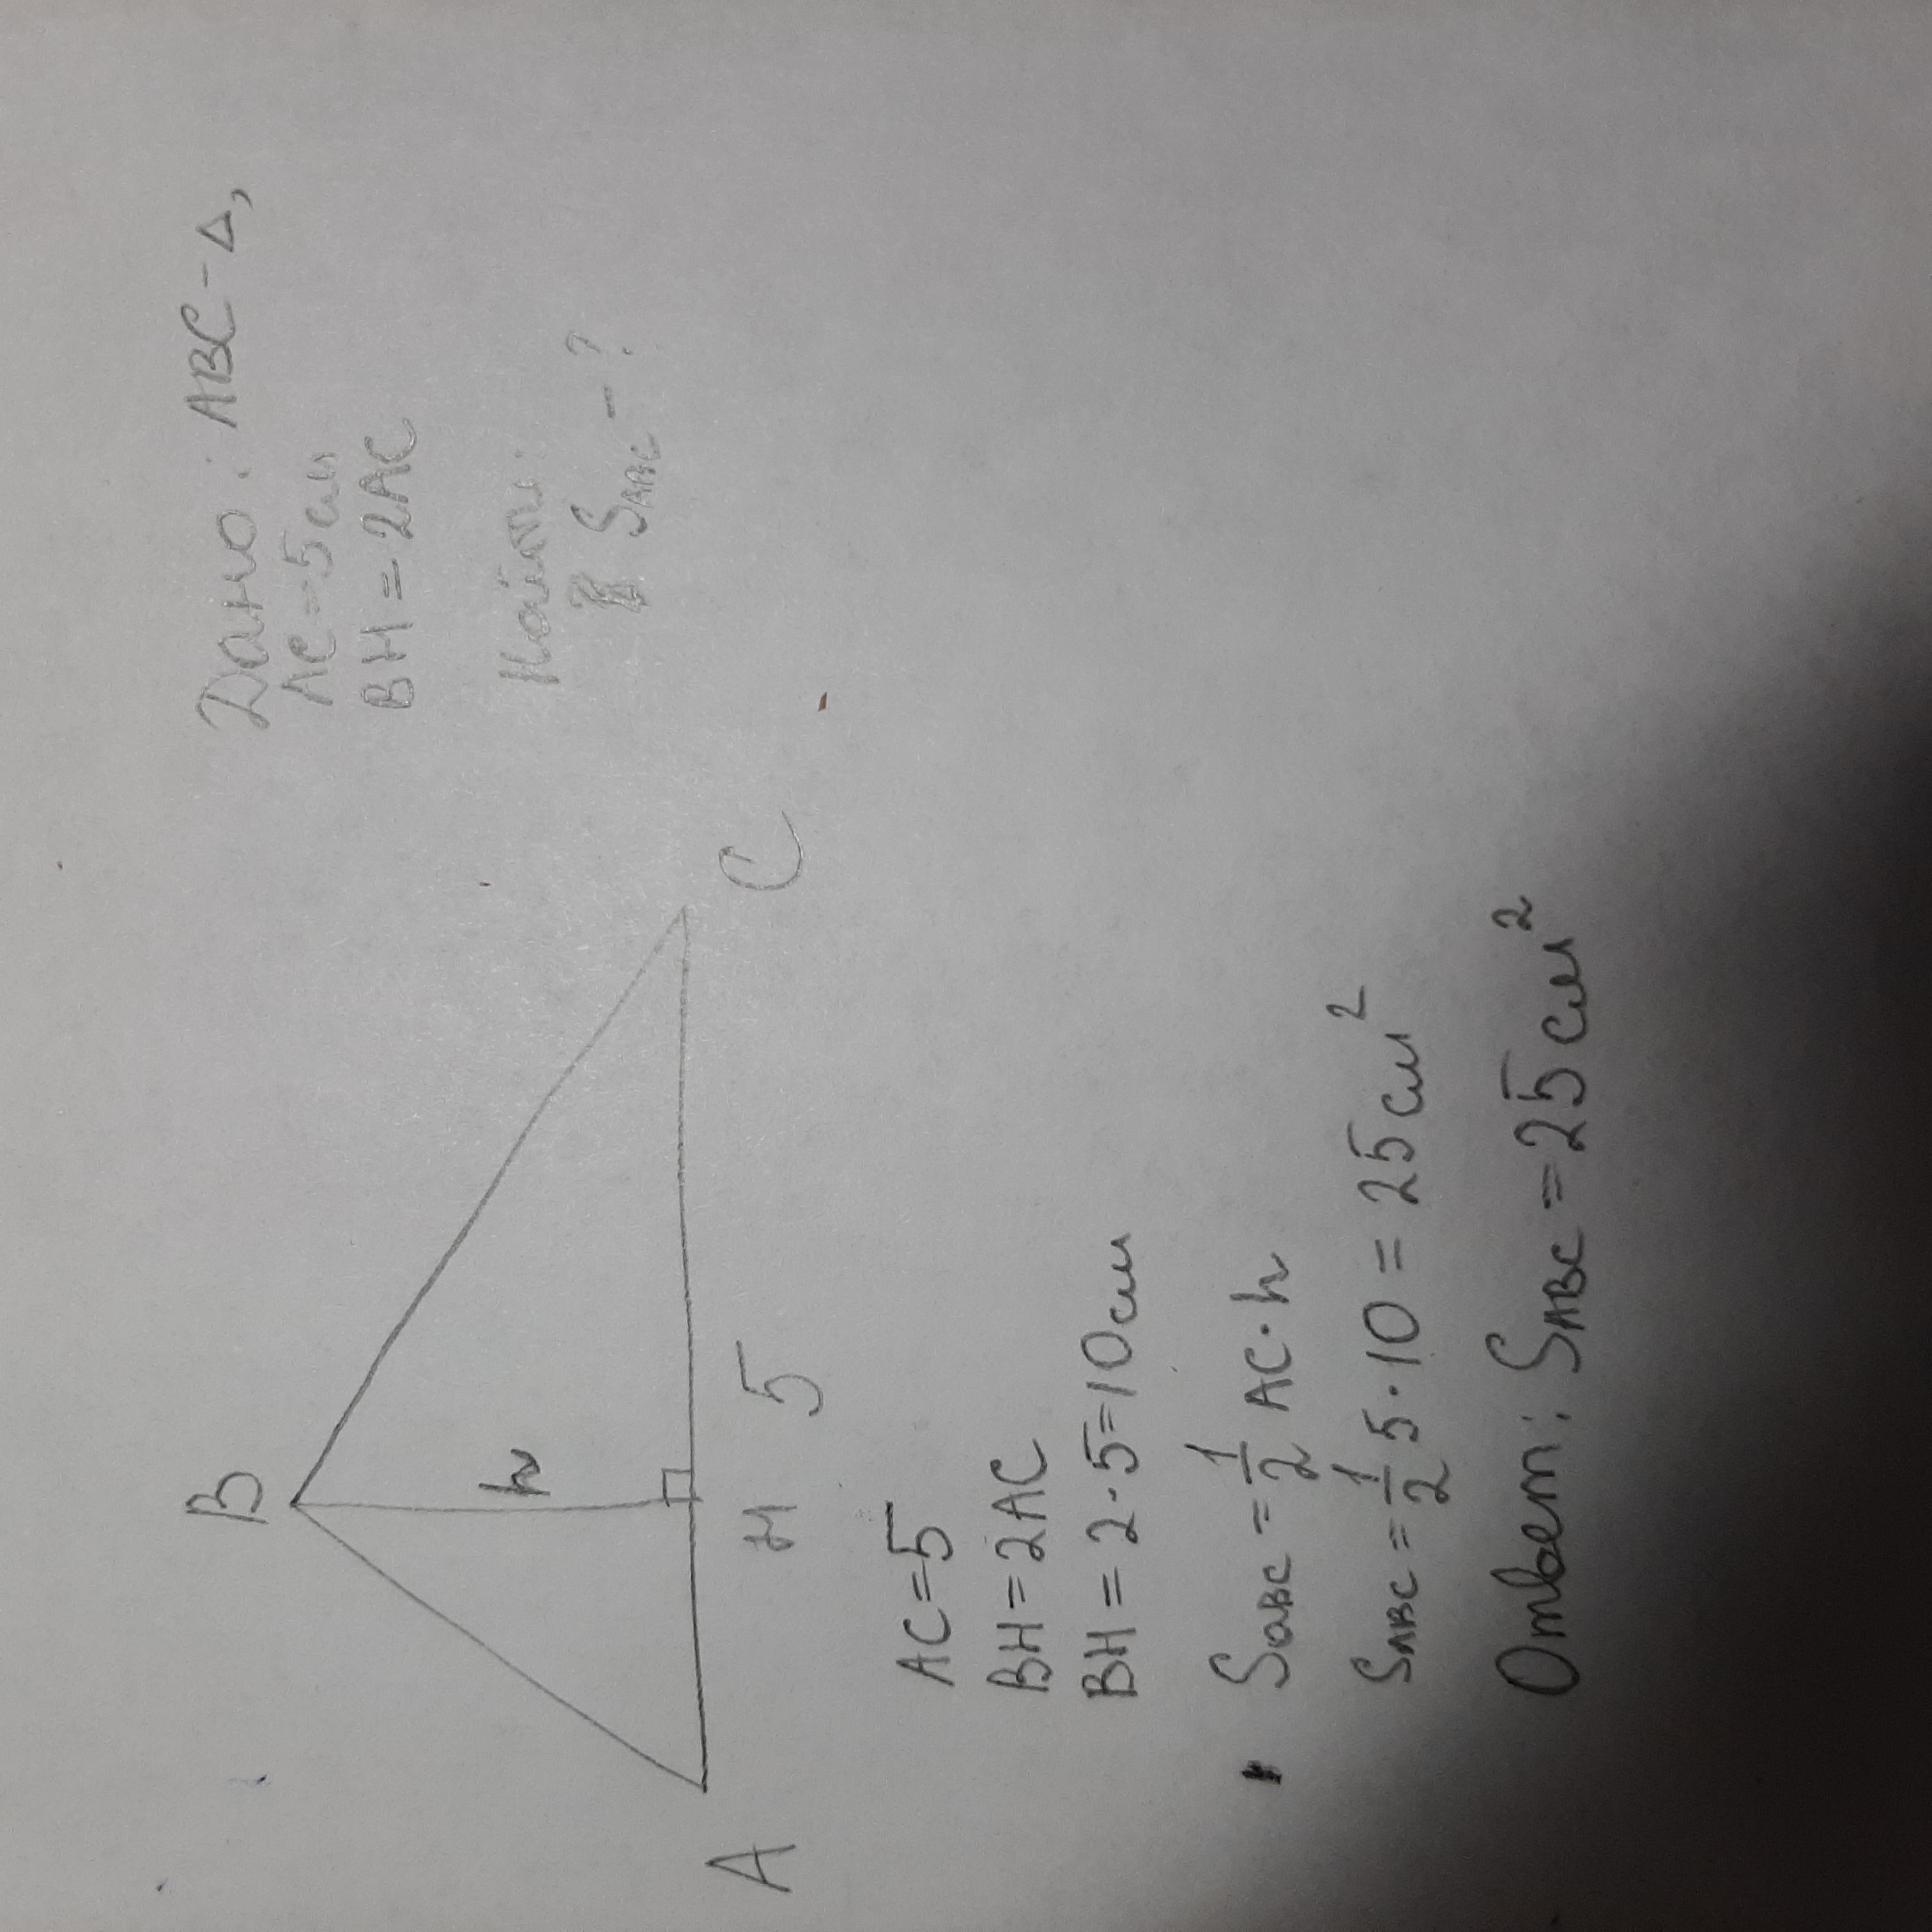 Дано: ABC - Δ,
AC = 5 см
BH = 2AC
Найти:
S_ABC - ?
B
h
A
H
5
C
AC = 5
BH = 2AC
BH = 2 · 5 = 10 см
S_ABC = 1/2 AC · h
S_ABC = 1/2 5 · 10 = 25 см²
Ответ: S_ABC = 25 см²